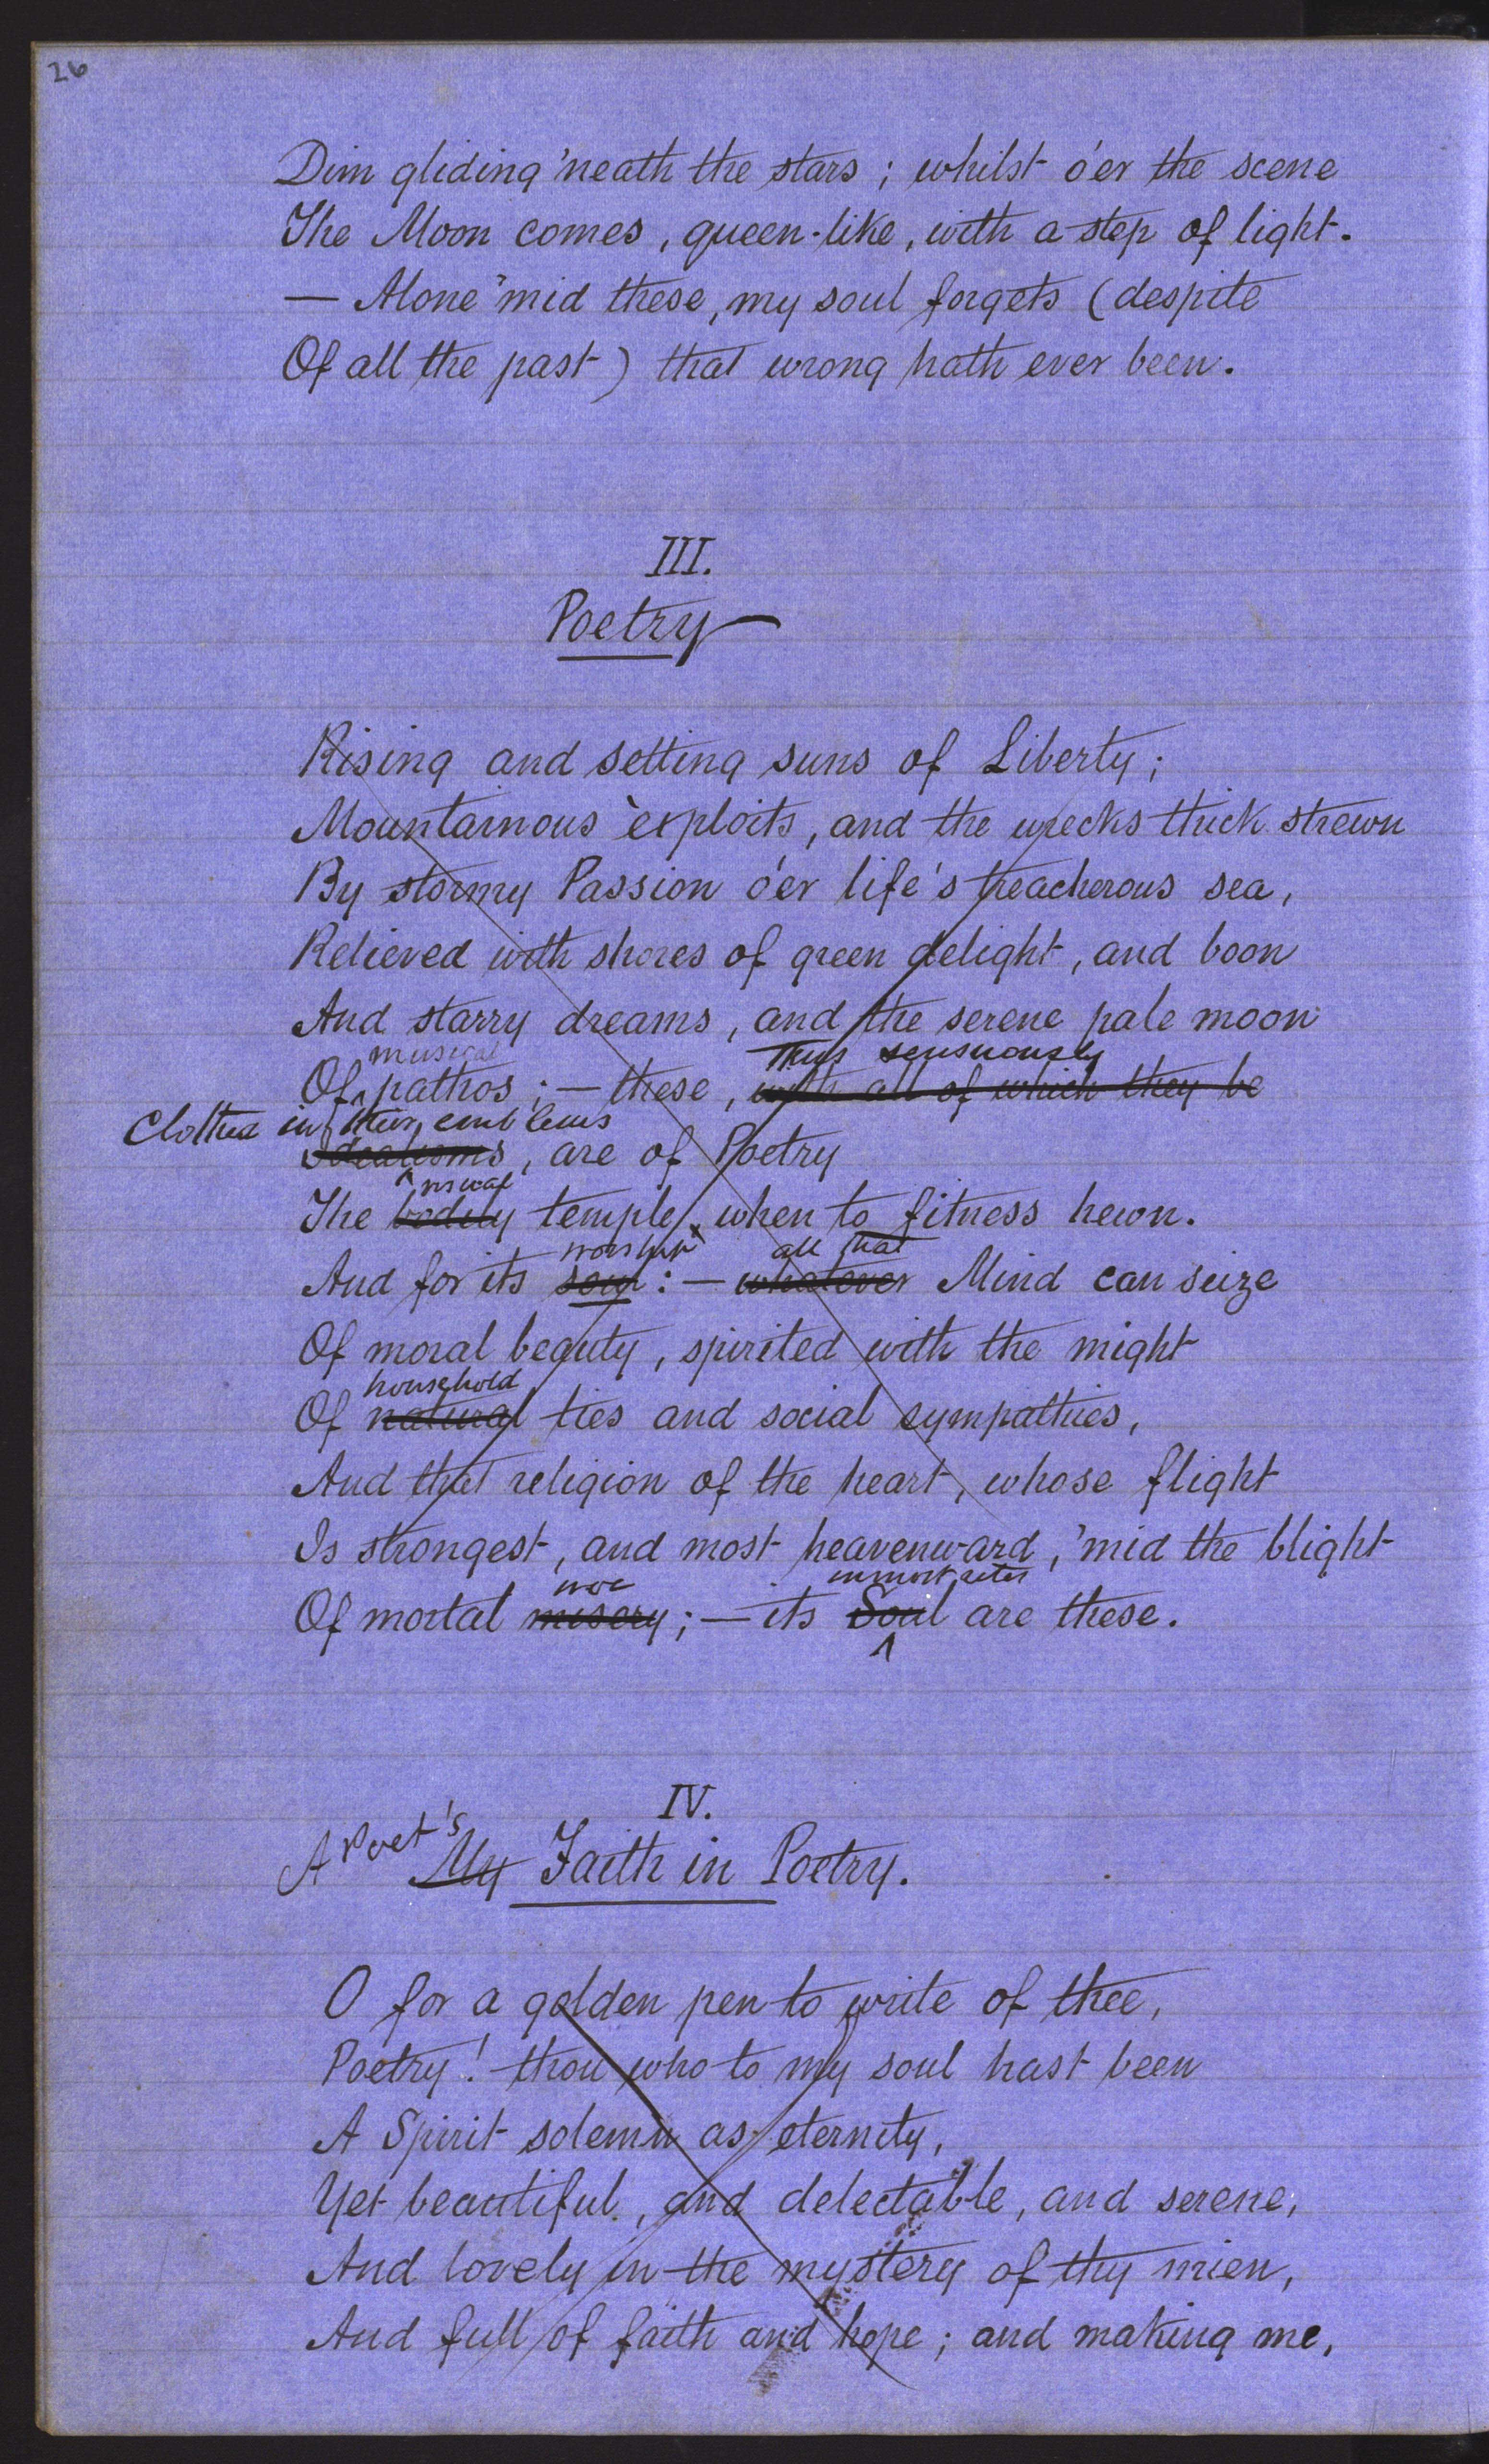 26
Dim gliding 'neath the stars; whilst o'er the scene
The Moon comes, queen-like, with a step of light.
— Alone 'mid these, my soul forgets (despite
Of all the past) that wrong hath ever been.
III.
Poetry
Rising and setting suns of Liberty;
Mountainous exploits, and the wrecks thick strewn
By stormy Passion o'er life's treacherous sea,
Relieved with shores of green delight, and boon
And starry dreams, and the serene pale moon
musical Thus sensuously
Of pathos; — these, with all of which they be
Clothed in their emblems
Idealisms, are of Poetry
The bodily temple, when to fitness hewn.
worship all that
And for its soul: — whatever Mind can seize
Of moral beauty, spirited with the might
household
Of natural ties and social sympathies,
And that religion of the heart, whose flight
Is strongest, and most heavenward, 'mid the blight
woe inmost rites
Of mortal misery; — its Soul are these.
IV.
A Poet's
My Faith in Poetry.
O for a golden pen to write of thee,
Poetry! thou who to my soul hast been
A Spirit solemn as eternity,
Yet beautiful, and delectable, and serene,
And lovely in the mystery of thy mien,
And full of faith and hope; and making me,